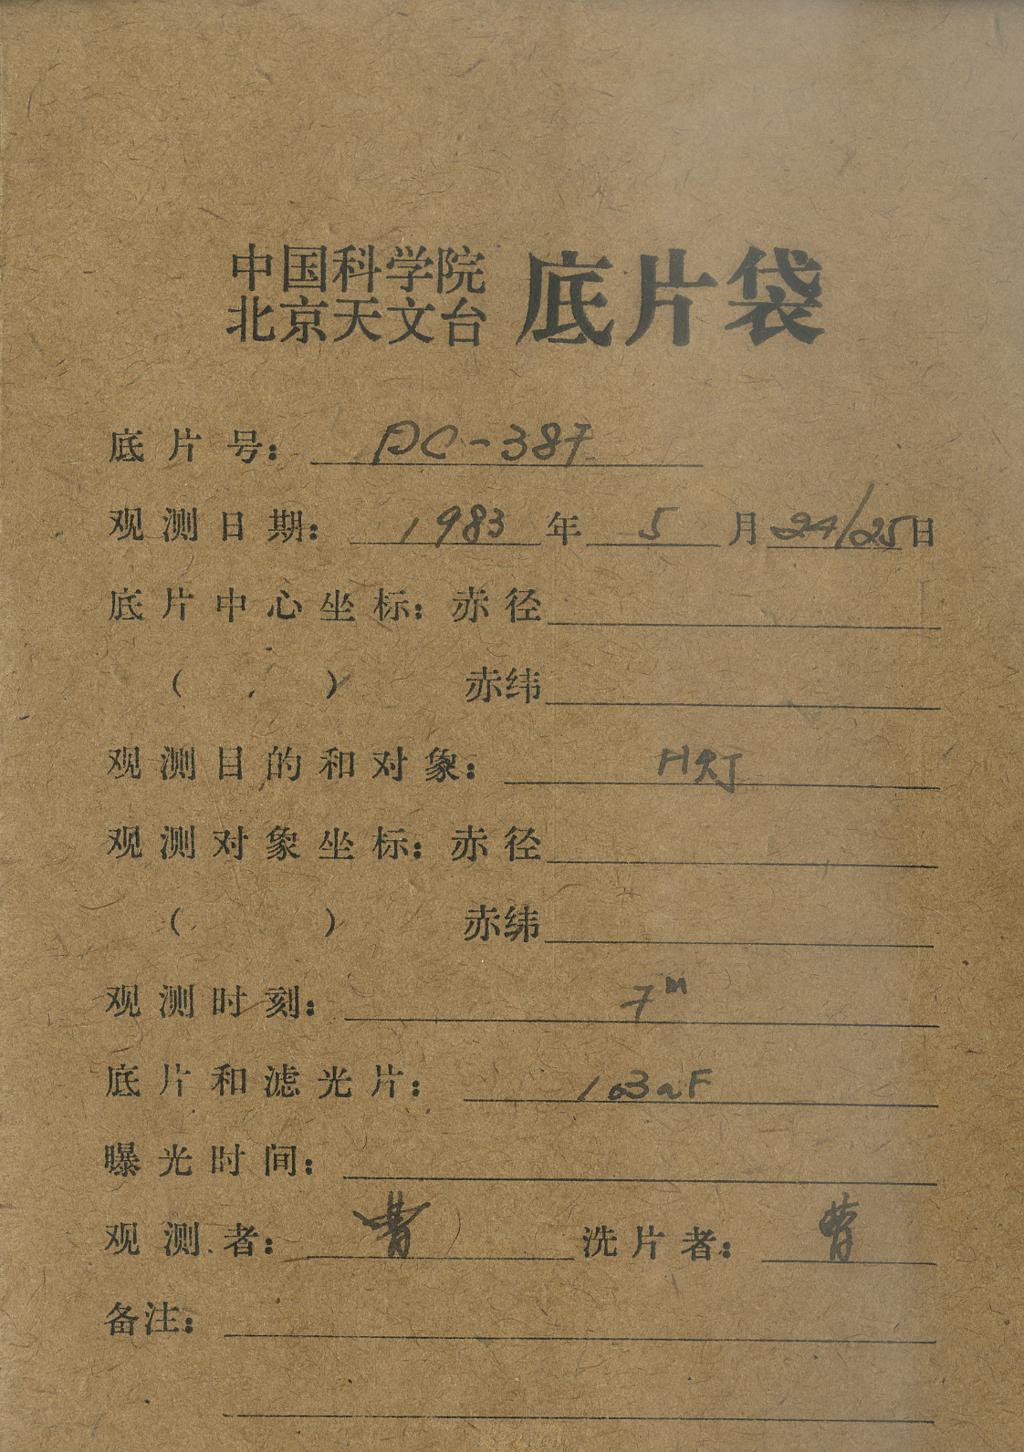 中国科学院
北京天文台 底片袋
底片号: PC-387
观测日期: 1983 年 5 月 24/25 日
底片中心坐标: 赤径
( ) 赤纬
观测目的和对象: H灯
观测对象坐标: 赤径
( ) 赤纬
观测时刻: 7m
底片和滤光片: 103aF
曝光时间:
观测者: 曹 洗片者: 曹
备注: